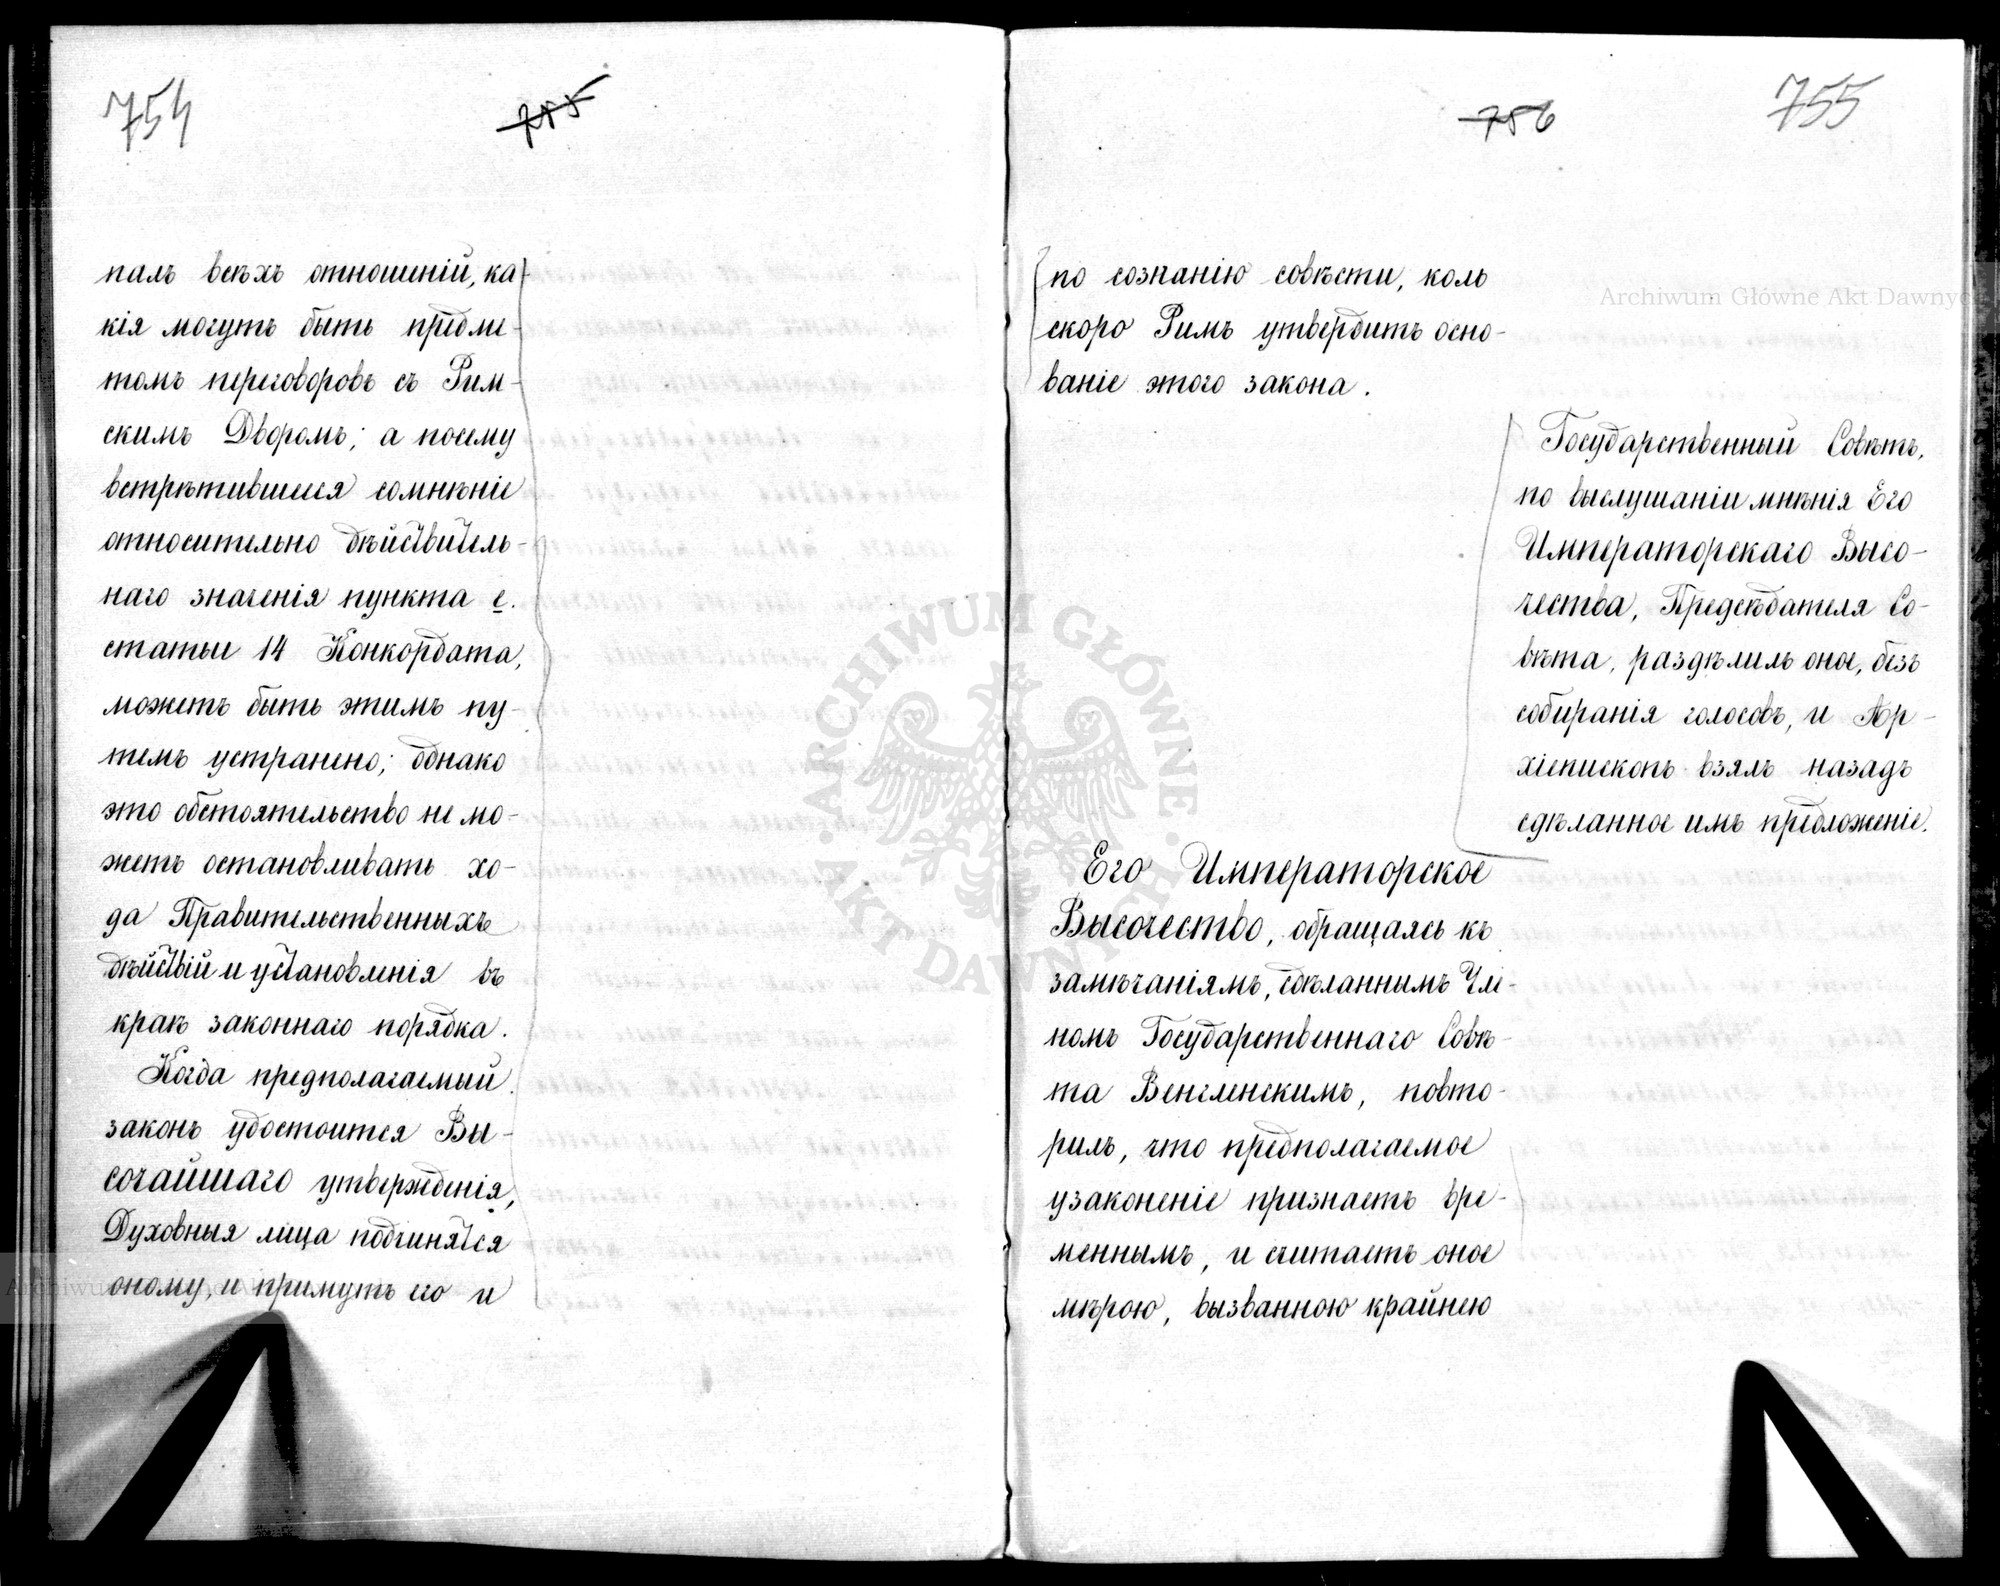 754
755
палъ всѣхъ отношеній, ка
кія могутъ быть предме-
томъ переговоровъ съ Рим-
скимъ Дворомъ; а посему
встрѣтившееся сомнѣніе
относительно дѣйствитель-
наго значенія пункта е.
статьи 14 Конкордата,
можетъ быть этимъ пу-
темъ устранено; однако
это обстоятельство не мо-
жетъ остановливать хо-
да Правительственныхъ
дѣйствій и установленія въ
краѣ законнаго порядка.
Когда предполагаемый
законъ удостоится Вы-
сочайшаго утвержденія,
Духовныя лица подчинятся
оному, и примутъ его и
756
755
по сознанію совѣсти, коль
скоро Римъ утвердитъ осно-
ваніе этого закона.
Государственный Совѣтъ,
по выслушаніи мнѣнія Его
Императорскаго Высо-
чества, Предсѣдателя Со-
вѣта, раздѣлилъ оное, безъ
собиранія голосовъ, и Ар-
хіепископъ взялъ назадъ
сдѣланное имъ предложеніе.
Его Императорское
Высочество, обращаясь къ
замѣчаніямъ, сдѣланнымъ Чле-
номъ Государственнаго Совѣ-
та Венгленскимъ, повто-
рилъ, что предполагаемое
узаконеніе признаетъ вре-
меннымъ, и считаетъ оное
мѣрою, вызванною крайнею
Archiwum Główne Akt Dawnyc
ARCHIWUM GŁÓWNE
AKT DAWNYCH